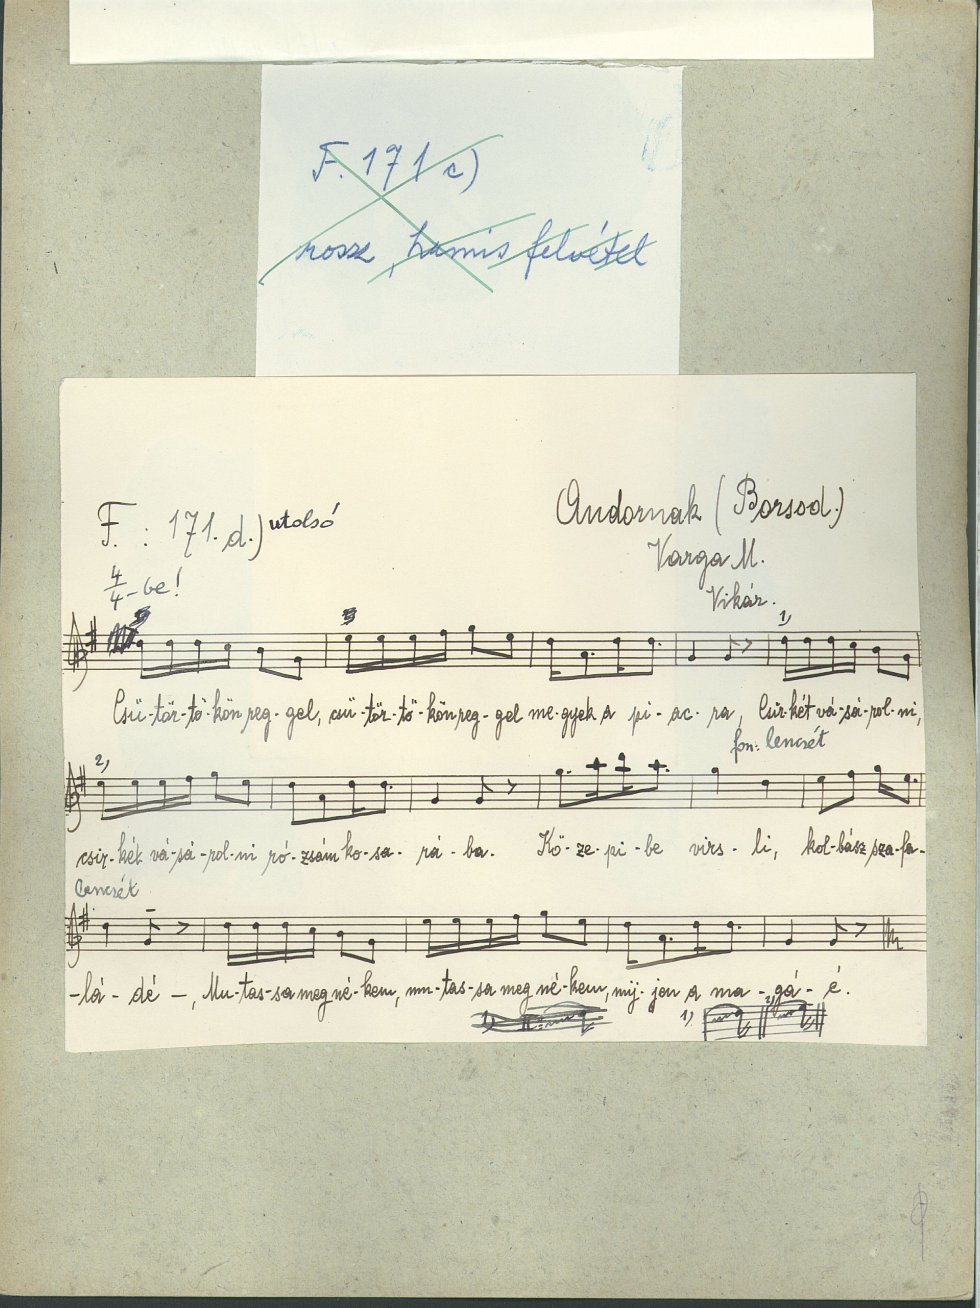 F. 171 c)
rossz, hamis felvétel
F. : 171. d.) utolsó
Andornak (Borsod.)
Varga M.
4/4-be!
Vikár.
1,
Csü-tör-tö-kön reg-gel, csü-tör-tö-kön reg-gel me-gyek a pi-ac-ra, Csir-két vá-sá-rol-ni,
fon: lencsét
2,
csir-két vá-sá-rol-ni ró-zsám ko-sa-rá-ba. Kö-ze-pi-be virs-li, kol-bász sza-fa-
lencsét
-lá-dé -, Mu-tas-sa meg né-kem, mu-tas-sa meg né-kem, mij-jen a ma-gá-é.
1, 2,